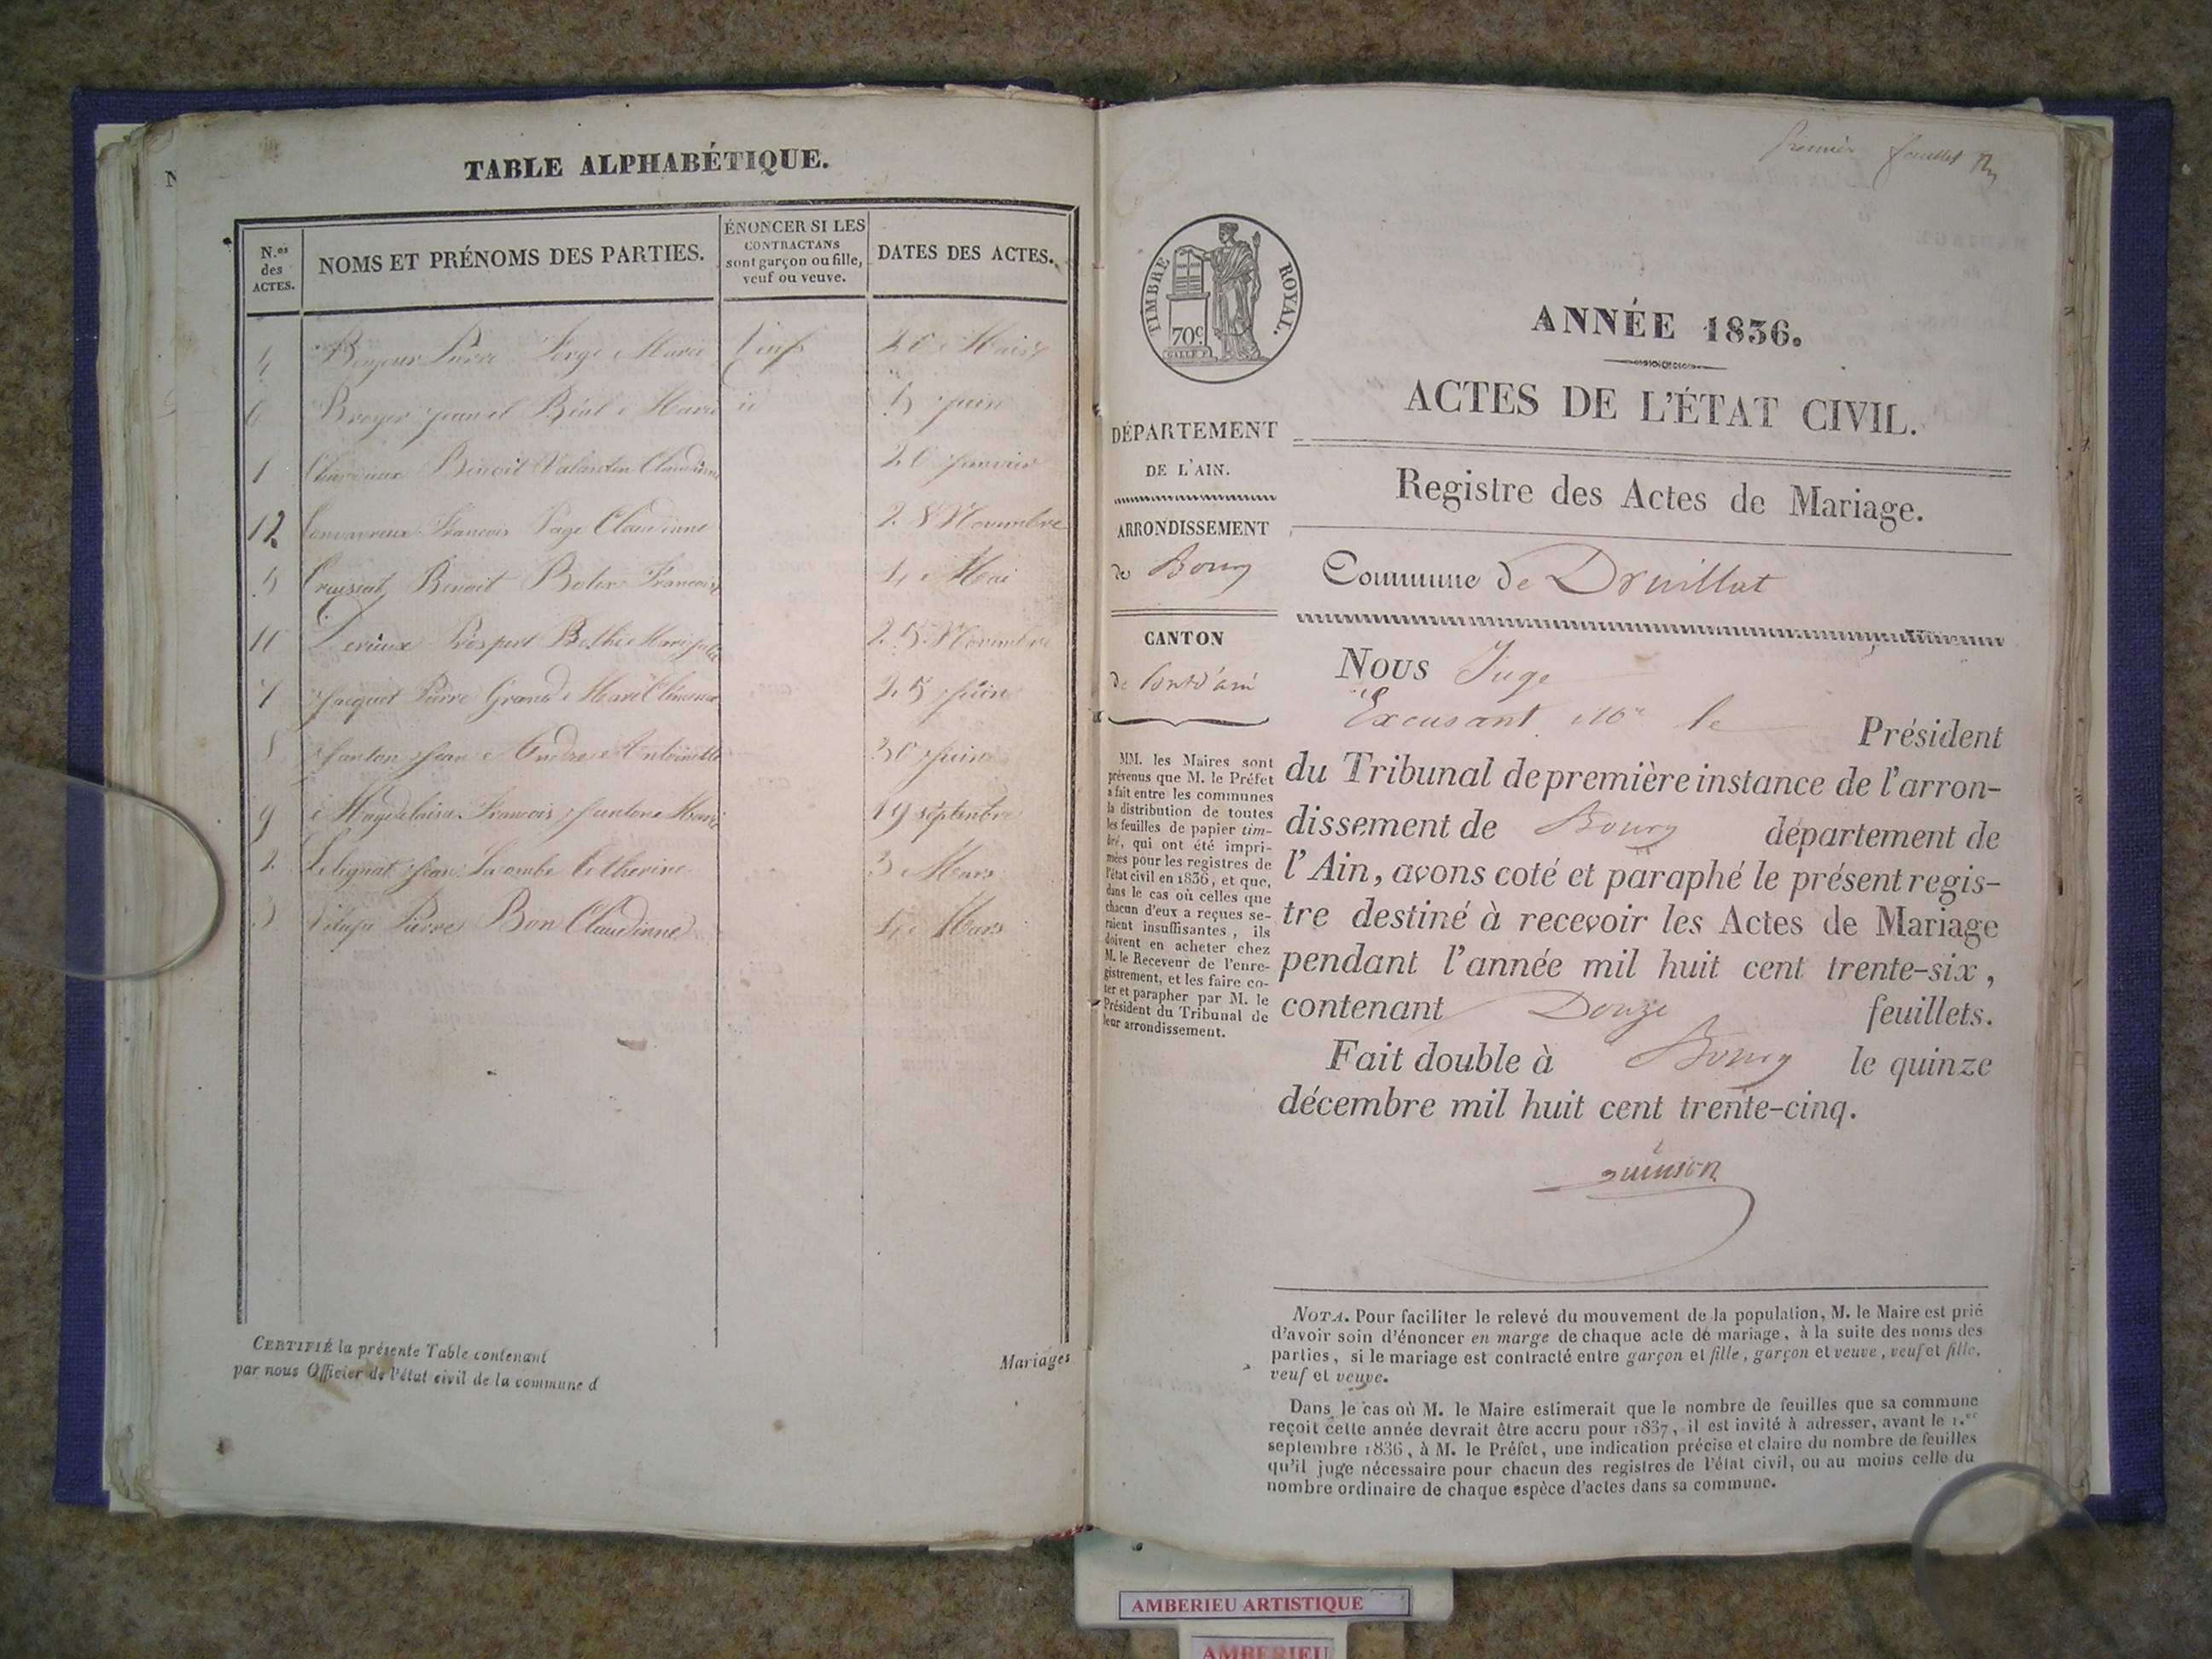 TABLE ALPHABÉTIQUE.
N.os des ACTES.
NOMS ET PRÉNOMS DES PARTIES.
ÉNONCER SI LES
CONTRACTANS
sont garçon ou fille,
veuf ou veuve.
DATES DES ACTES.
Pierre Marie
6 Broyer Jean et Béal Marie 15 Juin
1 Benoit Valentin Claudinne Janvier
12 François Page Claudinne 28 Novembre
5 Cruisiat Benoit 4 Mai
11 Derieux Prospert 25 Novembre
7 Jacquet Pierre Grand Marie 25 Juin
8 Jean Andre Antoinette 30 Juin
9 François Marie 19 septembre
2 Jean Lacombe Catherine 3 Mars
3 Pierre Bon Claudinne 4 Mars
CERTIFIÉ la présente Table contenant
Mariages
par nous Officier de l'état civil de la commune d
Premier feuillet
TIMBRE ROYAL.
70c
ANNÉE 1836.
ACTES DE L'ÉTAT CIVIL.
Registre des Actes de Mariage.
DÉPARTEMENT
DE L'AIN.
ARRONDISSEMENT
de Bourg
CANTON
de Pontd'ain
MM. les Maires sont
prévenus que M. le Préfet
a fait entre les communes
la distribution de toutes
les feuilles de papier tim-
bré, qui ont été impri-
mées pour les registres de
l'état civil en 1836, et que,
dans le cas où celles que
chacun d'eux a reçues se-
raient insuffisantes, ils
doivent en acheter chez
M. le Receveur de l'enre-
gistrement, et les faire co-
ter et parapher par M. le
Président du Tribunal de
leur arrondissement.
Commune de Druillat
Nous Juge
Excusant Mr le Président
du Tribunal de première instance de l'arron-
dissement de Bourg département de
l'Ain, avons coté et paraphé le présent regis-
tre destiné à recevoir les Actes de Mariage
pendant l'année mil huit cent trente-six,
contenant Douze feuillets.
Fait double à Bourg le quinze
décembre mil huit cent trente-cinq.
Quinson
NOTA. Pour faciliter le relevé du mouvement de la population, M. le Maire est prié
d'avoir soin d'énoncer en marge de chaque acte de mariage, à la suite des noms des
parties, si le mariage est contracté entre garçon et fille, garçon et veuve, veuf et fille,
veuf et veuve.
Dans le cas où M. le Maire estimerait que le nombre de feuilles que sa commune
reçoit cette année devrait être accru pour 1837, il est invité à adresser, avant le 1.er
septembre 1836, à M. le Préfet, une indication précise et claire du nombre de feuilles
qu'il juge nécessaire pour chacun des registres de l'état civil, ou au moins celle du
nombre ordinaire de chaque espèce d'actes dans sa commune.
AMBERIEU ARTISTIQUE
AMBERIEU